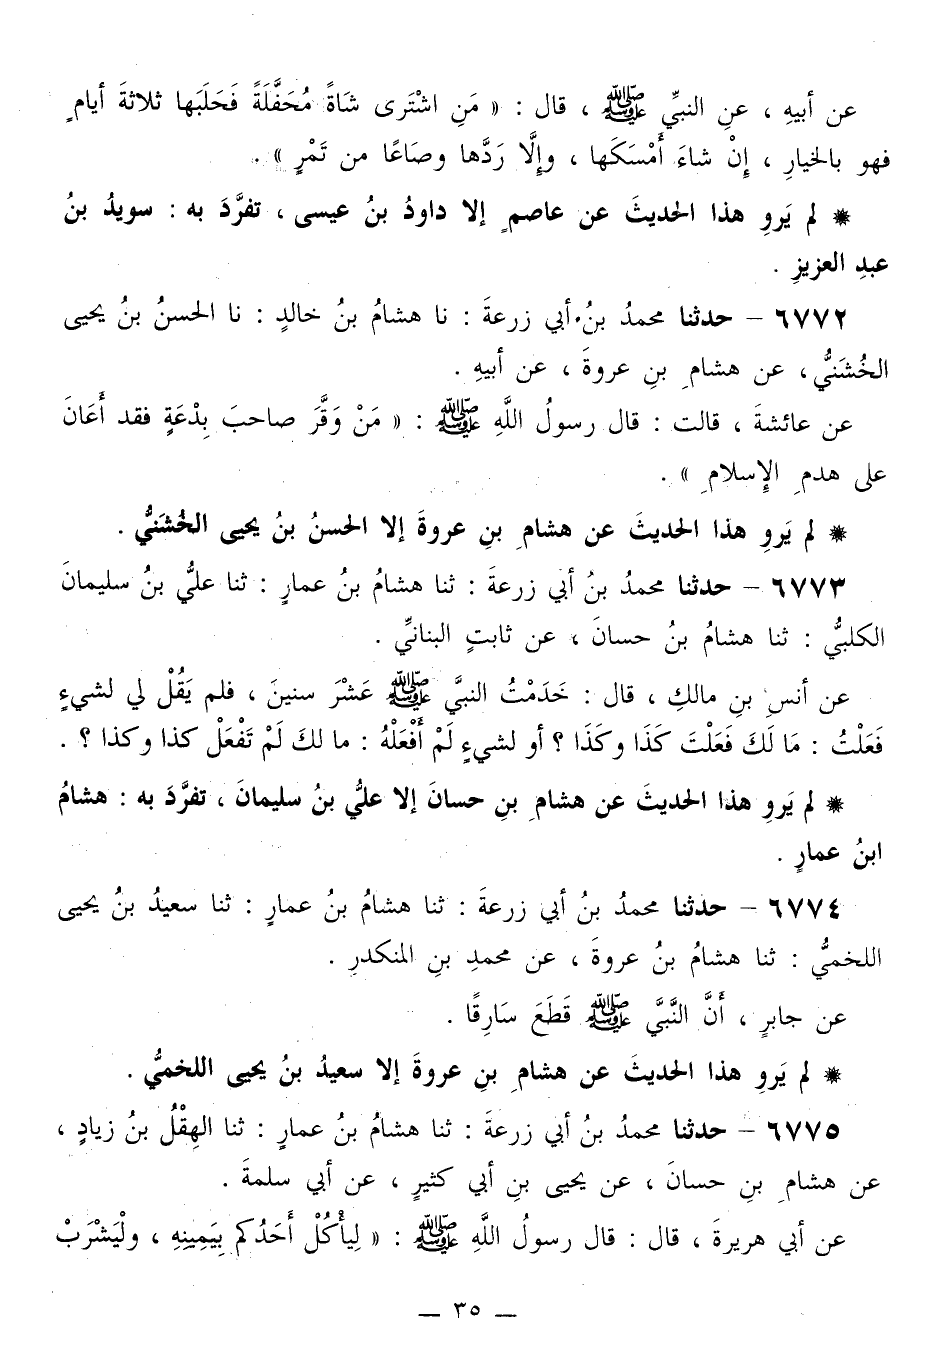 عن أبيهِ ، عنِ النبيِّ ﷺ ، قال : « مَنِ اشْتَرى شَاةً مُحَفَّلَةً فَحَلَبَها ثلاثةَ أيامٍ
فهو بالخيارِ ، إِنْ شاءَ أَمْسَكَها ، وإِلَّا رَدَّها وصَاعًا من تَمْرٍ » .
* لم يَروِ هذا الحديثَ عن عاصمٍ إلا داودُ بنُ عيسى ، تفرَّدَ به : سويدُ بنُ
عبدِ العزيزِ .
٦٧٧٢ – حدثنا محمدُ بنُ أبي زرعةَ : نا هشامُ بنُ خالدٍ : نا الحسنُ بنُ يحيى
الخُشَنيُّ ، عن هشامِ بنِ عروةَ ، عن أبيهِ .
عن عائشةَ ، قالت : قال رسولُ اللَّهِ ﷺ : « مَنْ وَقَّرَ صاحبَ بِدْعَةٍ فقد أَعَانَ
على هدمِ الإِسلامِ » .
* لم يَروِ هذا الحديثَ عن هشامِ بنِ عروةَ إلا الحسنُ بنُ يحيى الخُشَنيُّ .
٦٧٧٣ – حدثنا محمدُ بنُ أبي زرعةَ : ثنا هشامُ بنُ عمارٍ : ثنا عليُّ بنُ سليمانَ
الكلبيُّ : ثنا هشامُ بنُ حسانَ ، عن ثابتٍ البنانيِّ .
عن أنسِ بنِ مالكِ ، قال : خَدَمْتُ النبيَّ ﷺ عَشْرَ سنينَ ، فلم يَقُلْ لي لشيءٍ
فَعَلْتُ : مَا لَكَ فَعَلْتَ كَذَا وكَذَا ؟ أو لشيءٍ لَمْ أَفْعَلْهُ : ما لكَ لَمْ تَفْعَلْ كذا وكذا ؟ .
* لم يَروِ هذا الحديثَ عن هشامِ بنِ حسانَ إلا عليُّ بنُ سليمانَ ، تفرَّدَ به : هشامُ
ابنُ عمارٍ .
٦٧٧٤ – حدثنا محمدُ بنُ أبي زرعةَ : ثنا هشامُ بنُ عمارٍ : ثنا سعيدُ بنُ يحيى
اللخميُّ : ثنا هشامُ بنُ عروةَ ، عن محمدِ بنِ المنكدرِ .
عن جابرٍ ، أَنَّ النَّبيَّ ﷺ قَطَعَ سَارِقًا .
* لم يَروِ هذا الحديثَ عن هشامِ بنِ عروةَ إلا سعيدُ بنُ يحيى اللخميُّ .
٦٧٧٥ – حدثنا محمدُ بنُ أبي زرعةَ : ثنا هشامُ بنُ عمارٍ : ثنا الهِقْلُ بنُ زيادٍ ،
عن هشامِ بنِ حسانَ ، عن يحيى بنِ أبي كثيرٍ ، عن أبي سلمةَ .
عن أبي هريرةَ ، قال : قال رسولُ اللَّهِ ﷺ : « لِيأْكُلْ أَحَدُكم بِيَمِينِهِ ، ولْيَشْرَبْ
— ٣٥ —